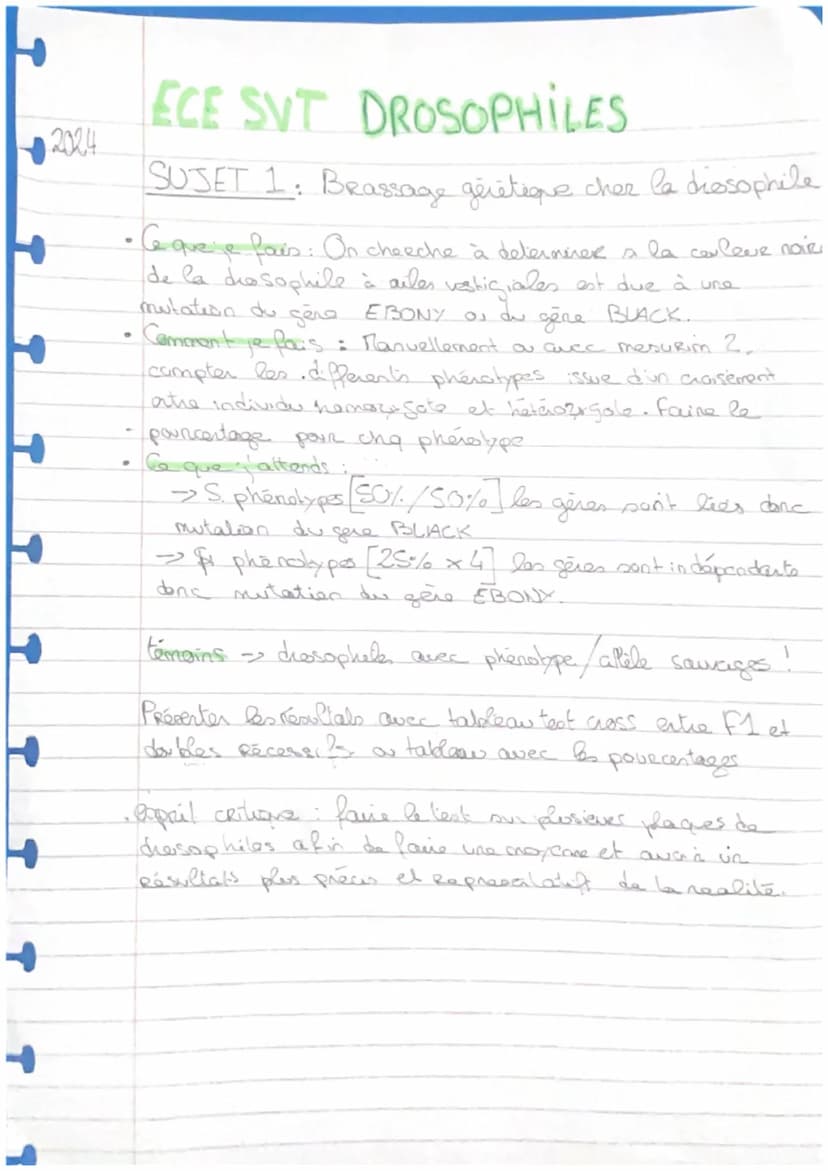 ECE SVT DROSOPHILES
2024
SUJET 1 : Brassage génétique chez la drosophile
• Ce que je fais : On cherche à determiner si la couleur noire
de la drosophile à ailes vestigiales est due à une
mutation du gène EBONY ou du gène BLACK.
• Comment je fais : Manuellement ou avec mesurim 2,
compter les différents phénotypes issue d'un croisement
entre individu homozygote et hétérozygote. Faire le
- pourcentage pour chq phénotype
• Ce que j'attends :
→ S. phénotypes [50% / 50%] les gènes sont liés donc
mutation du gene BLACK
→ phénotypes [25% × 4] les gènes sont indépendants
donc mutation du gène EBONY.
témoins → drosophiles avec phénotype/allèle sauvages !
Présenter les résultats avec tableau test cross entre F1 et
doubles récessifs ou tableau avec les pourcentages
• esprit critique : faire le test sur plusieurs plaques de
drosophiles afin de faire une moyenne et avoir un
résultats plus précis et représentatif de la réalité.